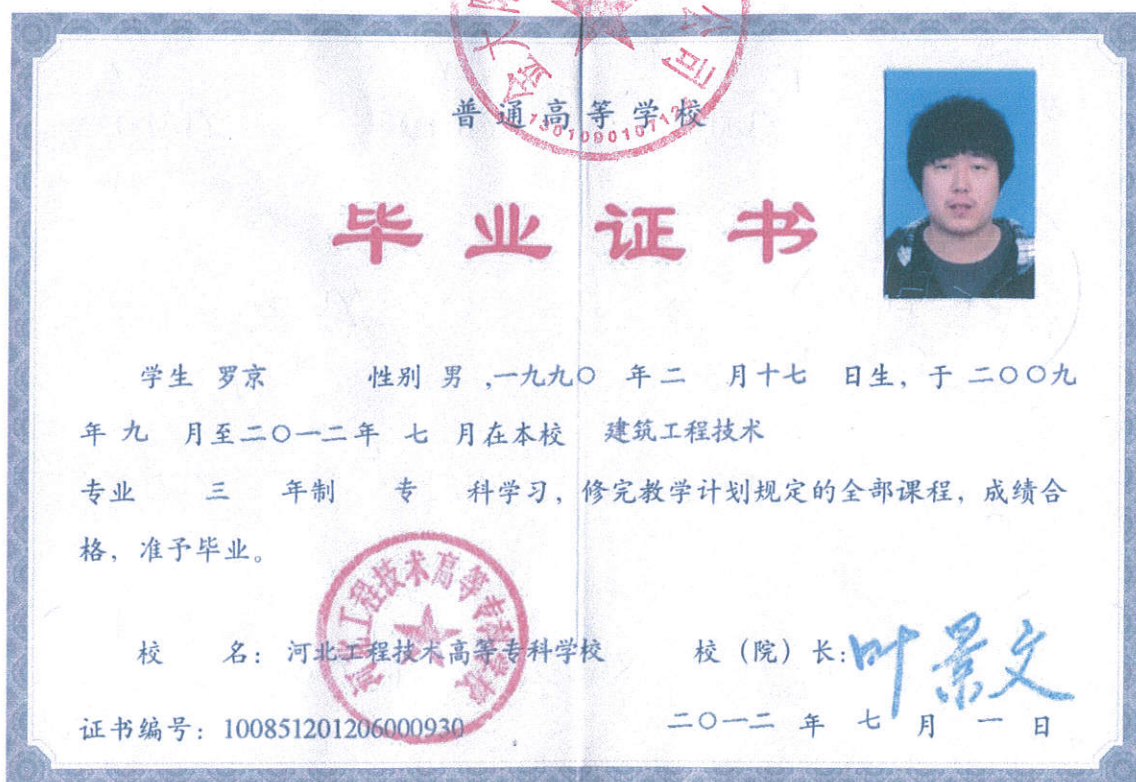 普通高等学校
毕业证书
学生 罗京 性别 男 ,一九九〇 年 二 月十七 日生, 于 二〇〇九
年 九 月至二〇一二年 七 月在本校 建筑工程技术
专业 三 年制 专 科学习, 修完教学计划规定的全部课程, 成绩合
格, 准予毕业。
河北工程技术高等专科学校
校 名: 河北工程技术高等专科学校 校(院)长: 叶景文
证书编号: 100851201206000930 二〇一二 年 七 月 一 日